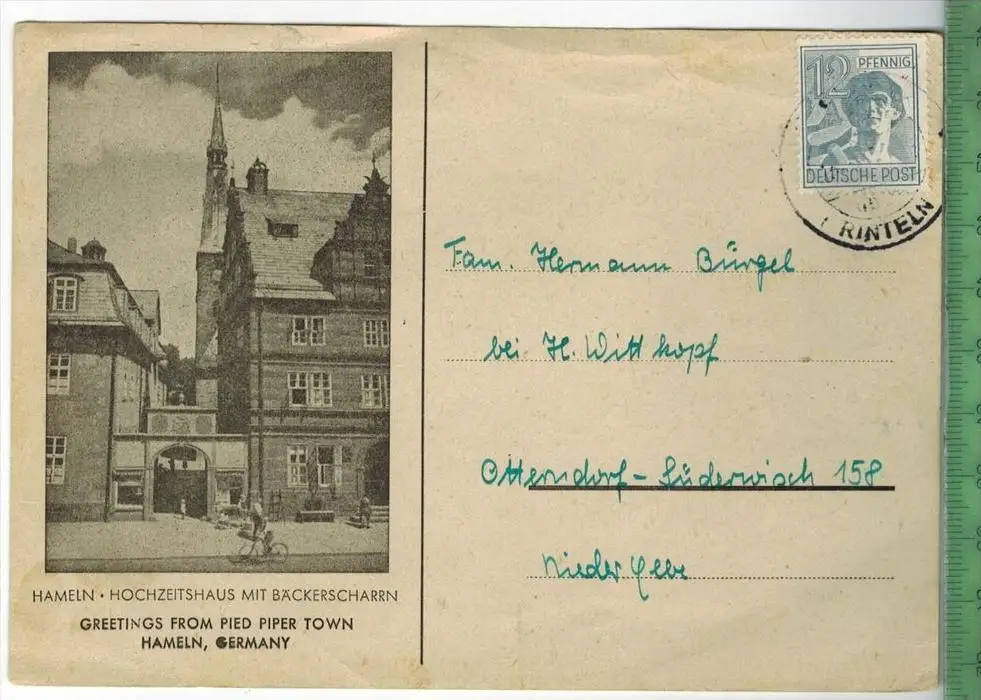 HAMELN • HOCHZEITSHAUS MIT BÄCKERSCHARRN
GREETINGS FROM PIED PIPER TOWN
HAMELN, GERMANY
12 PFENNIG
DEUTSCHE POST
RINTELN
Fam. Hermann Bürgel
bei H. Wittkopf
Otterndorf-Süderwisch 158
Nieder Elbe